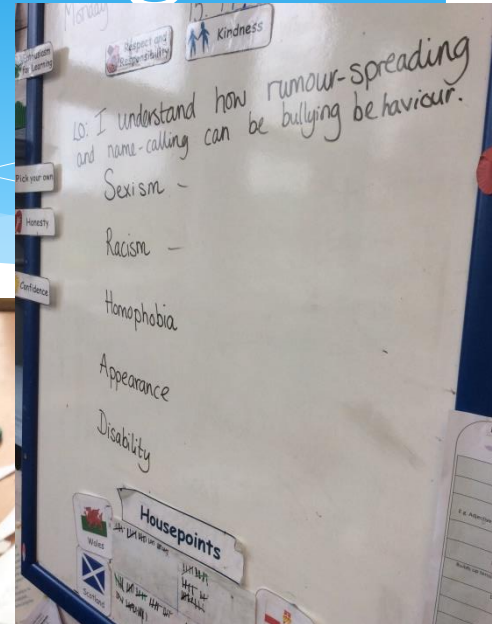 Monday
Respect and
Responsibility
Kindness
Enthusiasm
for Learning
LO: I understand how rumour-spreading
and name-calling can be bullying behaviour.
Pick your own
Sexism -
Honesty
Racism -
Confidence
Homophobia
Appearance
Disability
Housepoints
Wales
Scotland